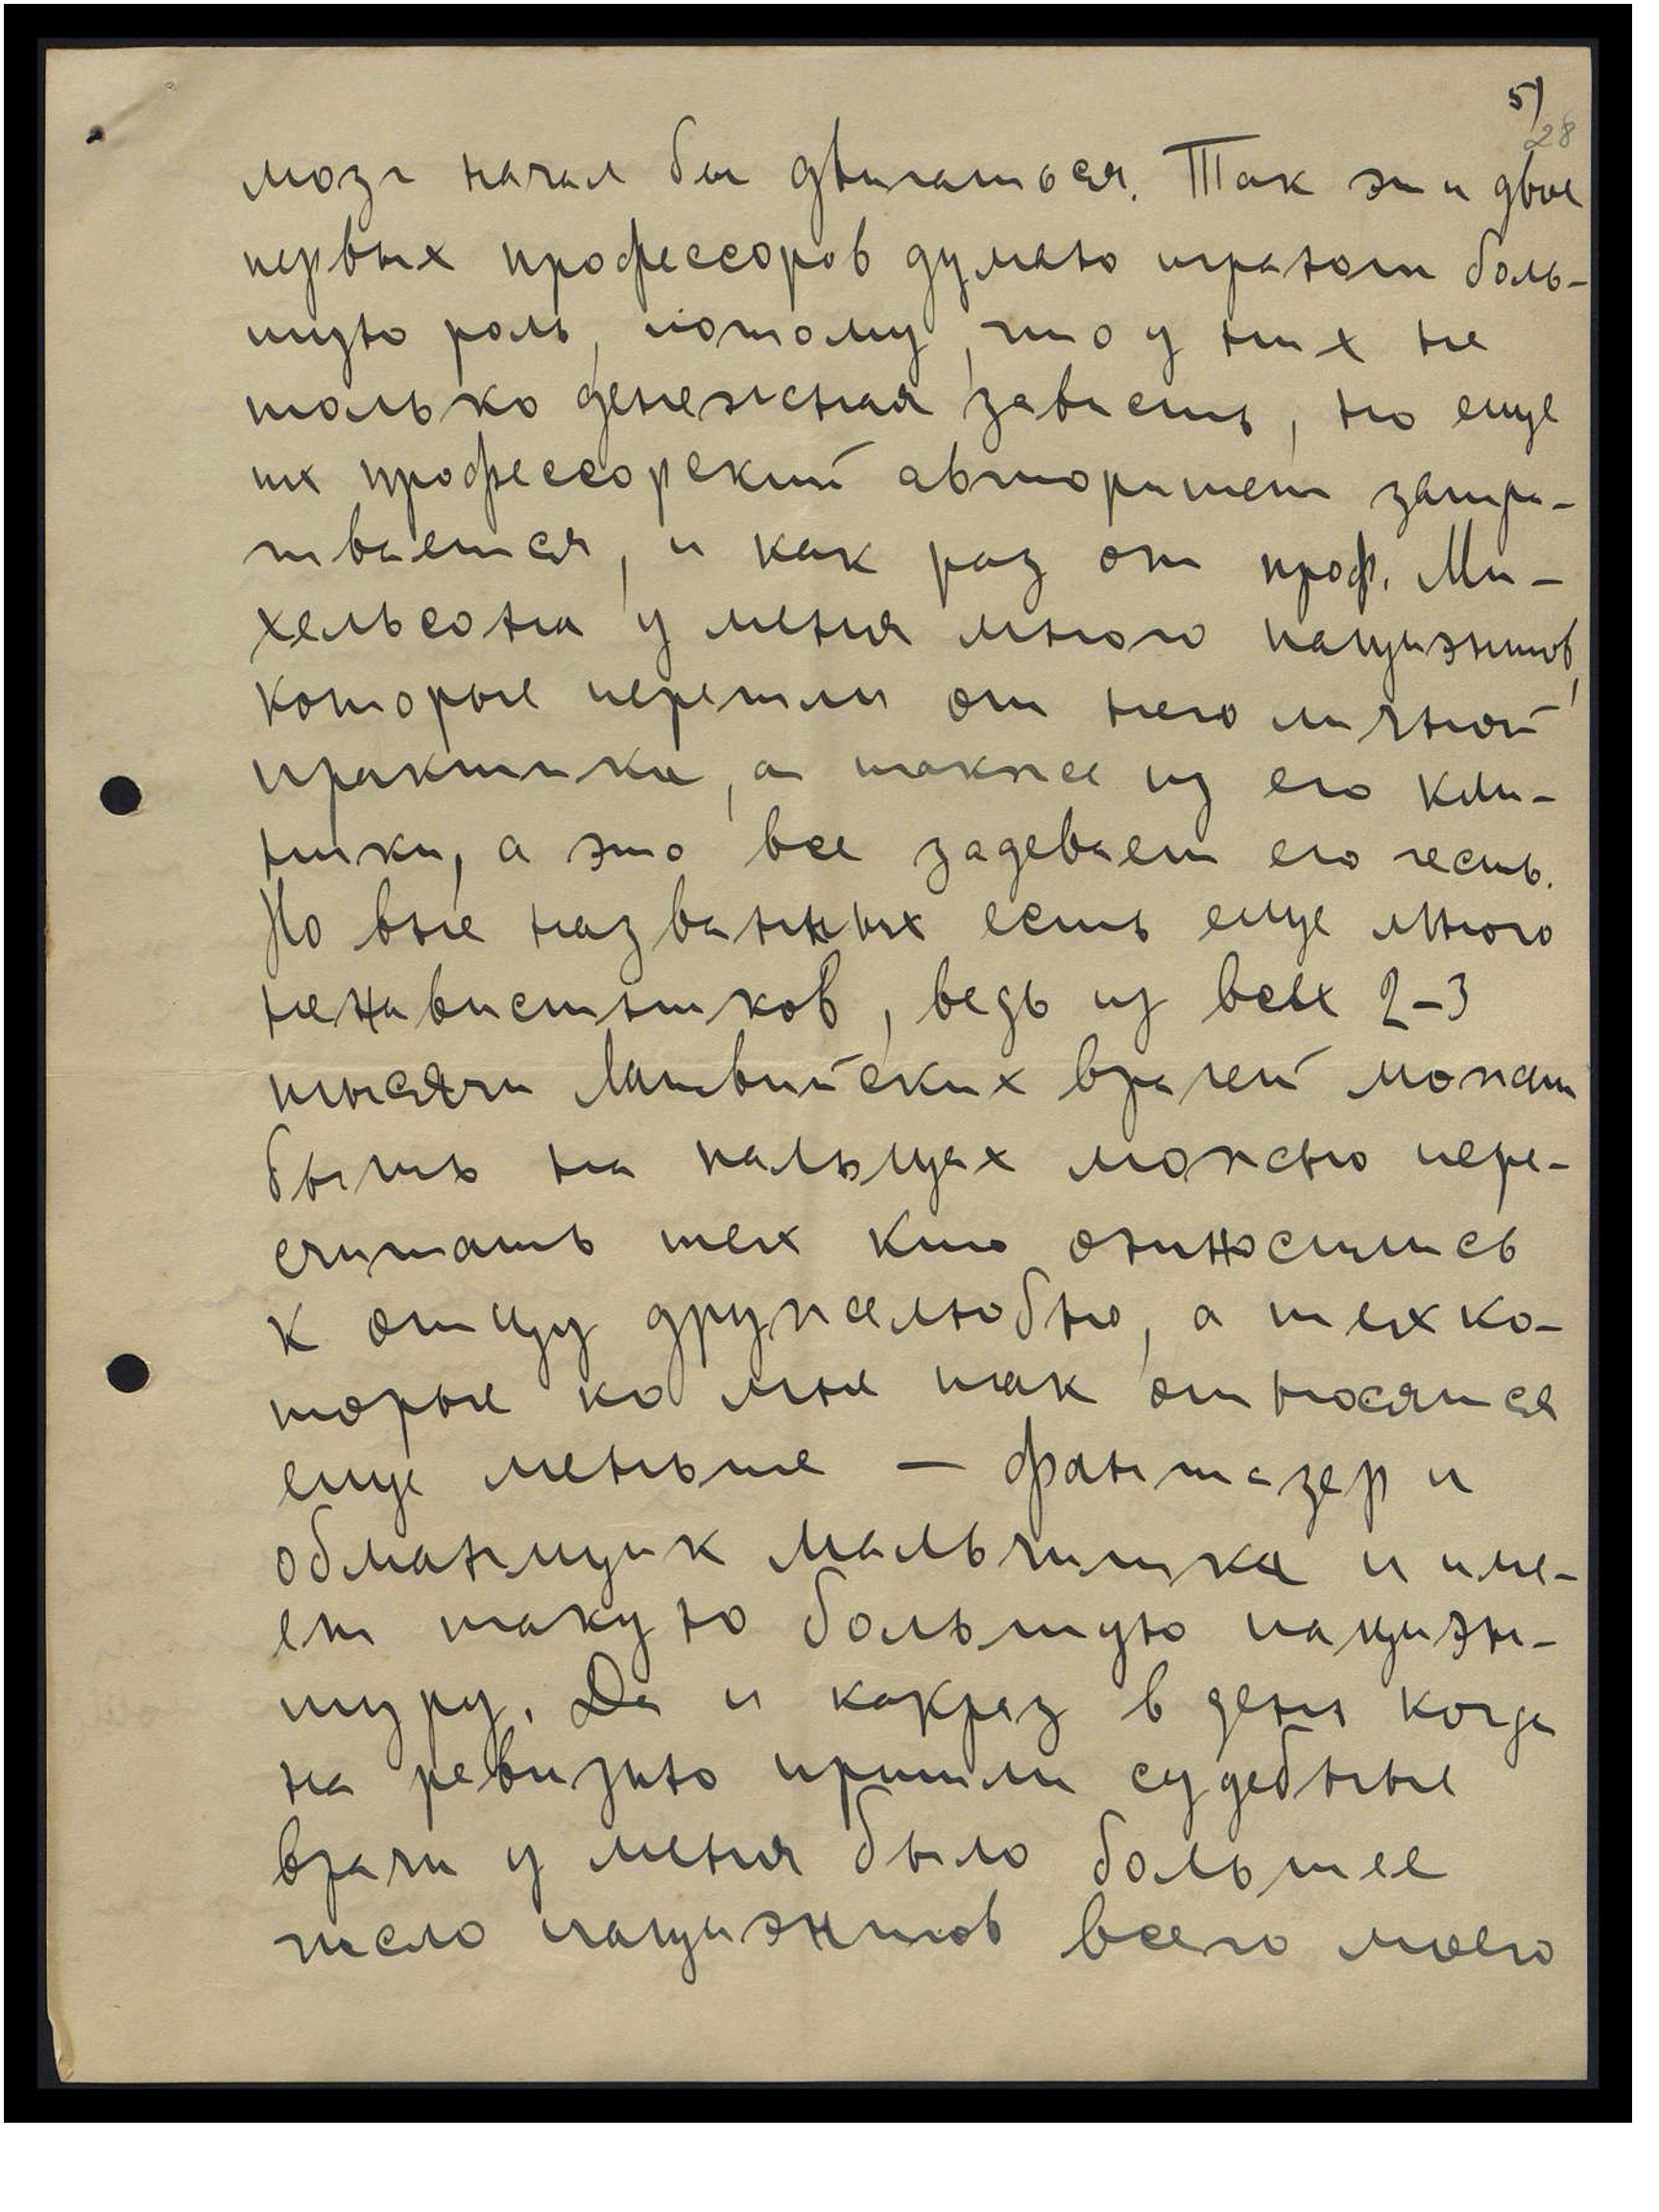 5)
28
мозг начал бы двигаться. Так эти двое
первых профессоров думаю играют боль-
шую роль, потому, что у них не
только денежная зависть, но еще
их профессорский авторитет затра-
гивается, и как раз от проф. Ми-
хельсона у меня много пациэнтов,
которые перешли от него личной
практики, а также из его кли-
ники, а это все задевает его честь.
Но вне названных есть еще много
ненавистников, ведь из всех 2-3
тысячи Латвийских врачей может
быть на пальцах можно пере-
считать тех кто относились
к отцу дружелюбно, а тех ко-
торые ко мне так относятся
еще меньше — фантазер и
обманщик мальчишка и име-
ет такую большую пациэн-
туру. Да и какраз в день когда
на ревизию пришли судебные
врачи у меня было большее
число пациэнтов всего моего